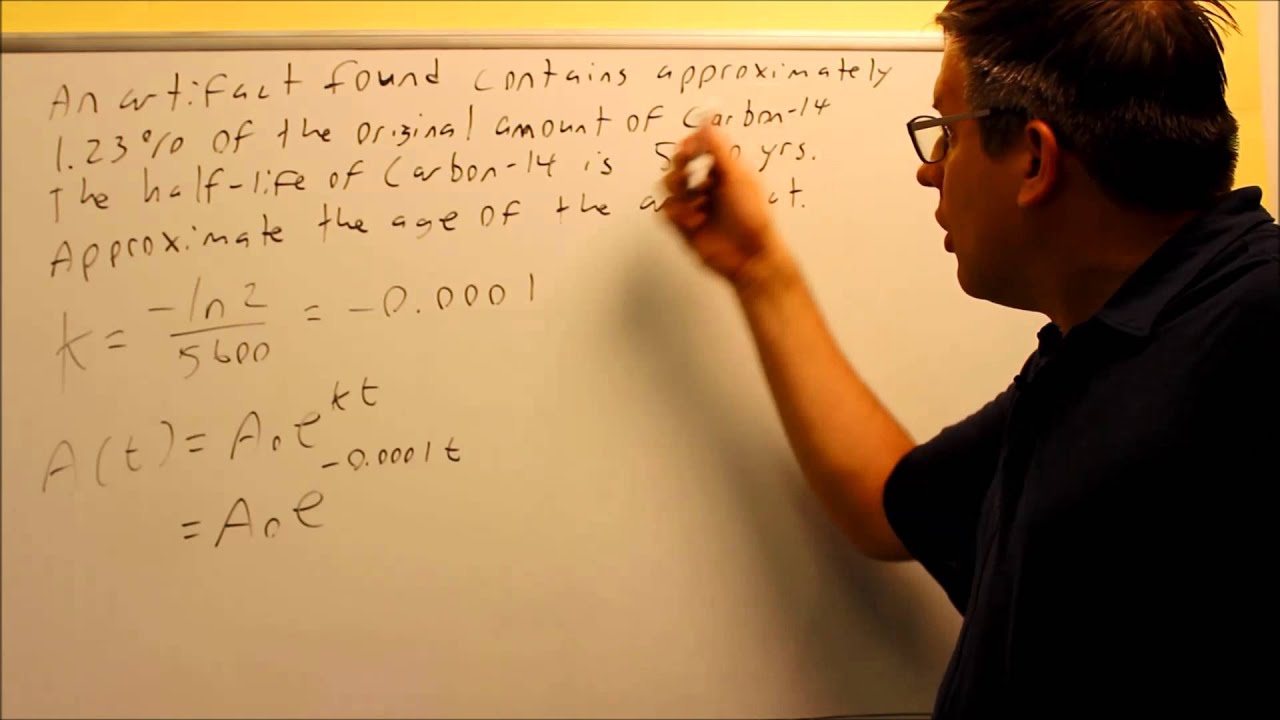 An artifact found contains approximately
1.23% of the original amount of Carbon-14
The half-life of Carbon-14 is yrs.
Approximate the age of the
k = -ln 2 / 5600 = -0.0001
A(t) = A₀e^kt
= A₀e^-0.0001t